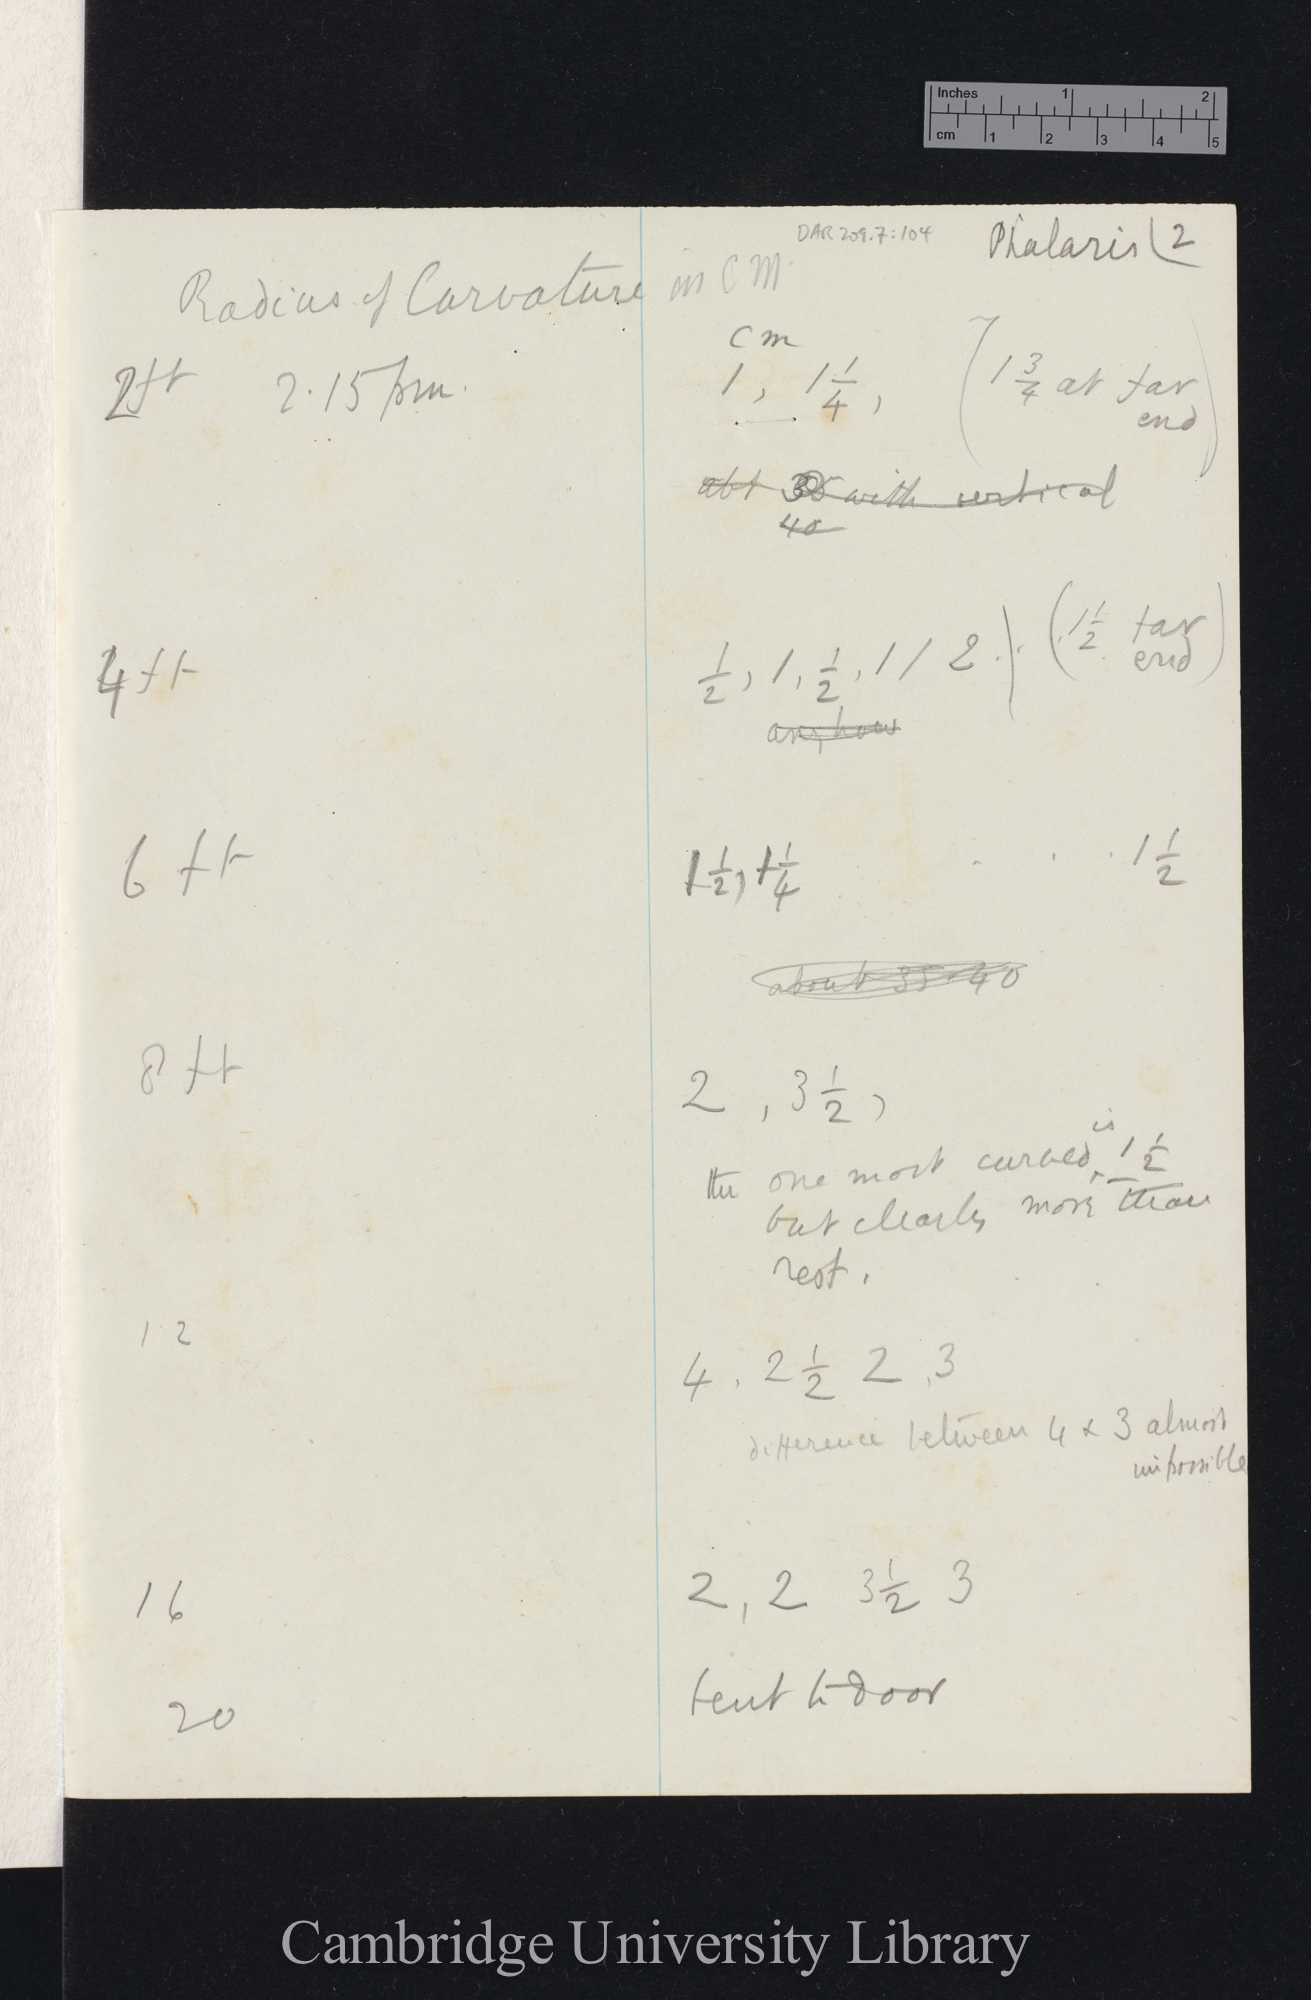 Inches 1 2
cm 1 2 3 4 5
DAR 209.7:104 Phalaris (2
Radius of Curvature in CM.
cm
2 ft 2.15 pm. 1, 1 1/4, (1 3/4 at far
end)
abt 35 with vertical
40
4 ft 1/2, 1, 1/2, 1 / 2 (1 1/2 far
end)
anyhow
6 ft 1 1/2, 1 1/4 . . . 1 1/2
about 35-40
8 ft 2, 3 1/2,
the one most curved, is 1 1/2
but clearly more than
rest.
12 4, 2 1/2 2, 3
difference between 4 & 3 almost
impossible
16 2, 2 3 1/2 3
20 bent to door
Cambridge University Library